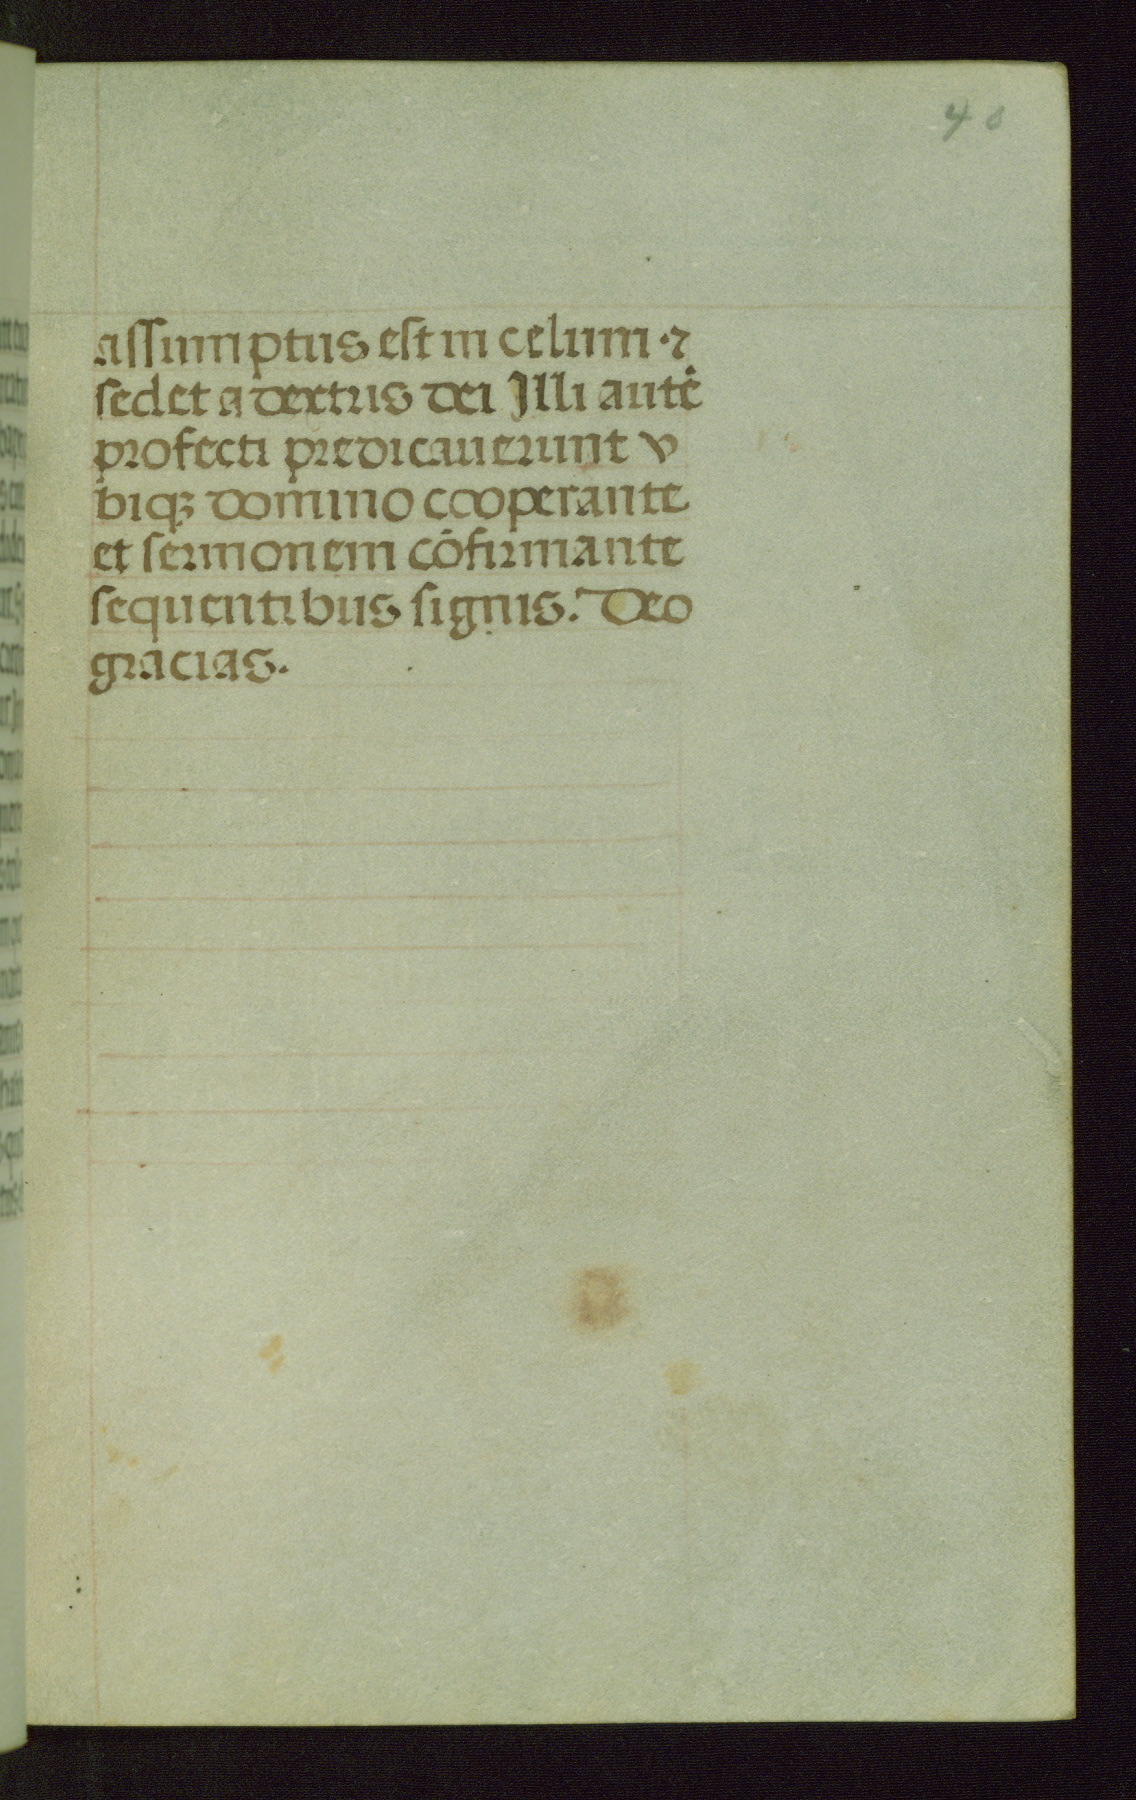 40
assumptus est in celum ·⁊
sedet a dextris dei Illi autē
profecti predicauerunt v
biqꝫ domino cooperante
et sermonem cōfirmante
sequentibus signis. Deo
gracias.